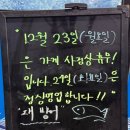 "12월 23일(월요일)
은 가게 사정상 휴무!
입니다. 24일(화요일)은
정상영업합니다!!